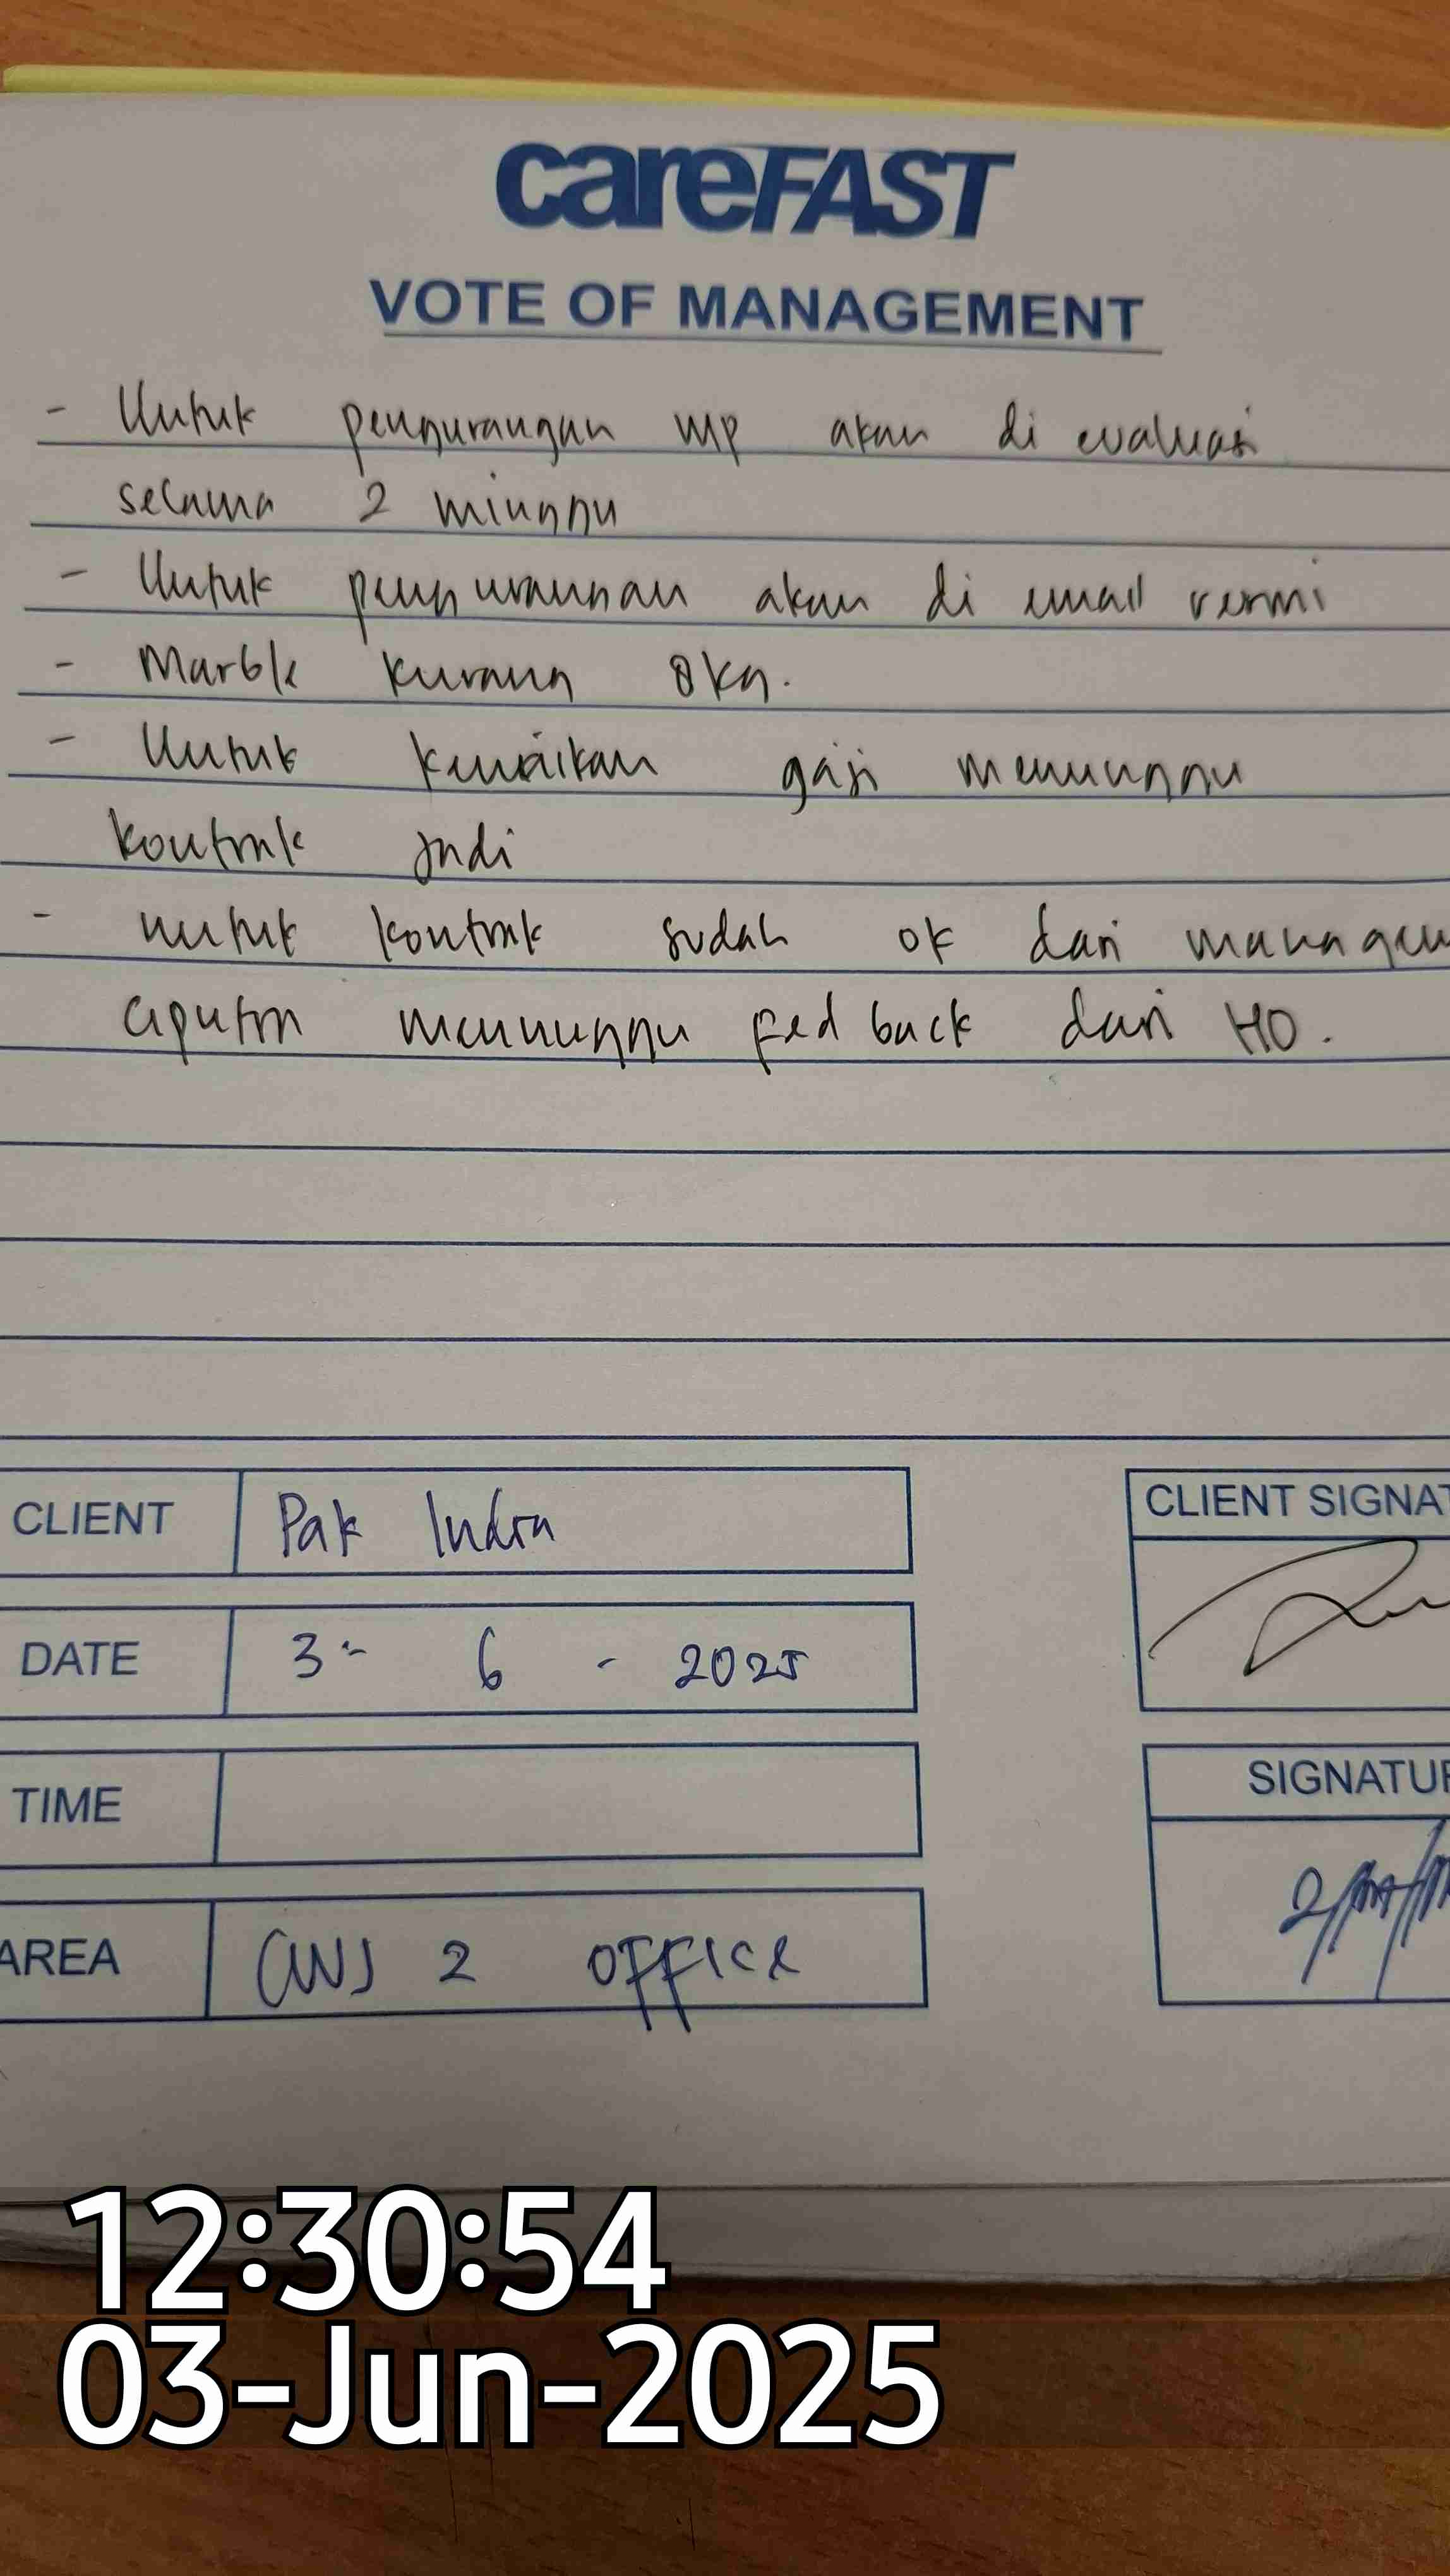 careFAST
VOTE OF MANAGEMENT
- Untuk pengurangan mp akan di evaluasi
selama 2 minggu
- Untuk pengurangan akan di email resmi
- Marble kurang oke.
- Untuk kenaikan gaji menunggu
kontrak jadi
- untuk kontrak sudah ok dari managem
Ciputra menunggu fedback dari HO.
CLIENT Pak Indra
CLIENT SIGNAT
DATE 3 - 6 - 2025
TIME
SIGNATUR
AREA CWJ 2 OFFICE
12:30:54
03-Jun-2025